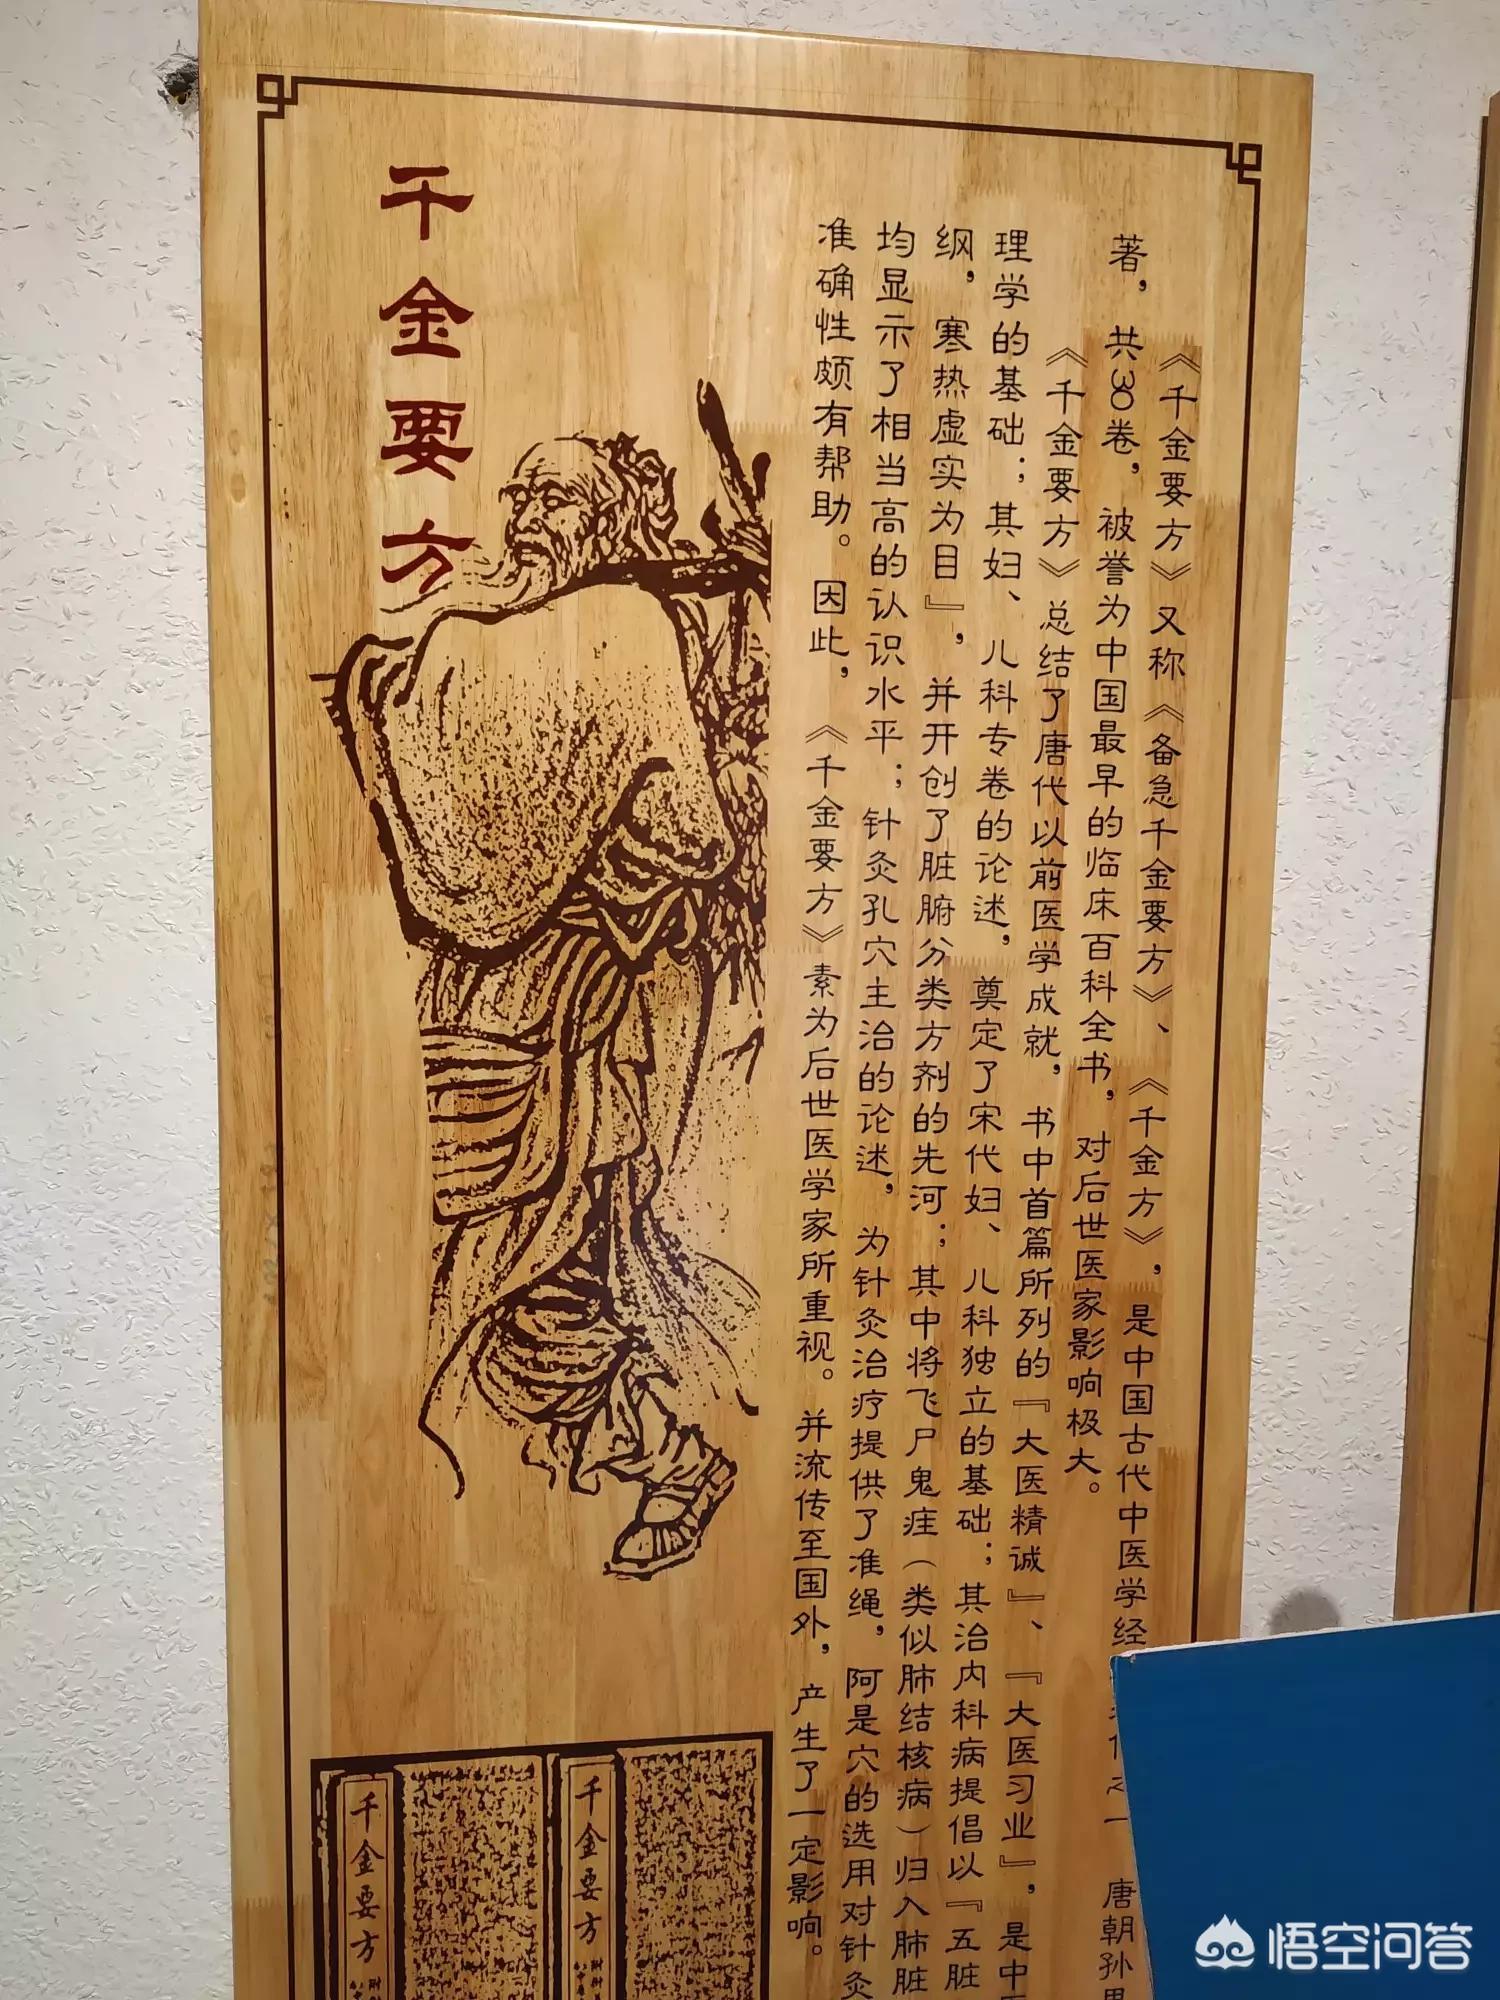 《千金要方》又称《备急千金要方》、《千金方》，是中国古代中医学经 之一 唐朝孙
著，共30卷，被誉为中国最早的临床百科全书，对后世医家影响极大。
《千金要方》总结了唐代以前医学成就，书中首篇所列的『大医精诚』、『大医习业』，是中
理学的基础；其妇、儿科专卷的论述，奠定了宋代妇、儿科独立的基础；其治内科病提倡以『五脏
纲，寒热虚实为目』，并开创了脏腑分类方剂的先河；其中将飞尸鬼疰（类似肺结核病）归入肺脏
均显示了相当高的认识水平；针灸孔穴主治的论述，为针灸治疗提供了准绳，阿是穴的选用对针灸
准确性颇有帮助。因此，《千金要方》素为后世医学家所重视。并流传至国外，产生了一定影响。
千金要方
千金要方
千金要方
悟空问答